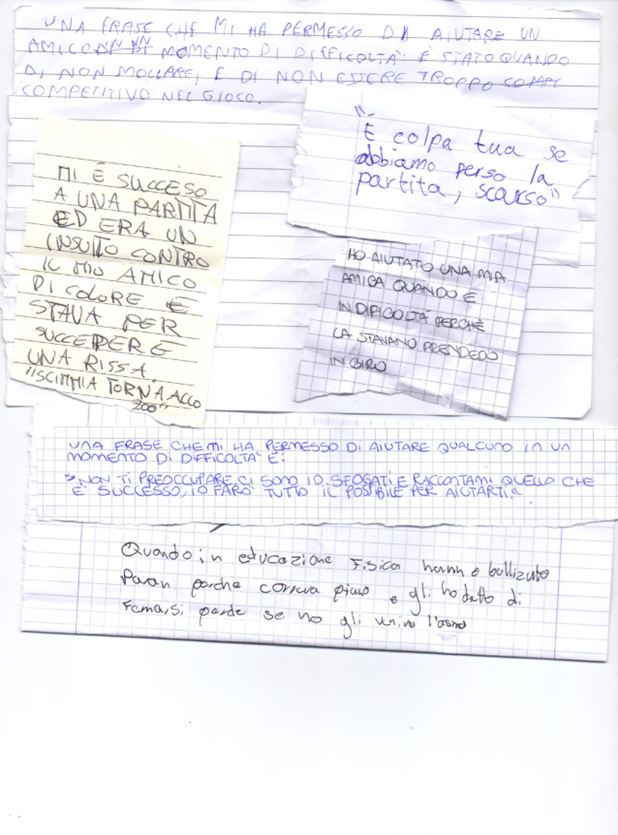 UNA FRASE CHE MI HA PERMESSO DI AIUTARE UN
AMICO UN MOMENTO DI DIFFICOLTÀ È STATO QUANDO
DI NON MOLLARE, E DI NON ESSERE TROPPO COMPE
COMPETITIVO NEL GIOCO.
"È colpa tua se
abbiamo perso la
partita, scarso"
MI È SUCCESO
A UNA PARTITA
ED ERA UN
INSULTO CONTRO
IL MIO AMICO
DI COLORE E
STAVA PER
SUCCEDERE
UNA RISSA.
"SCIMMIA TORNA ALLO
ZOO"
HO AIUTATO UNA MIA
AMICA QUANDO È
IN DIFICOLTÀ PERCHÈ
LA STAVANO PRENDEDO
IN GIRO
UNA FRASE CHE MI HA PERMESSO DI AIUTARE QUALCUNO IN UN
MOMENTO DI DIFFICOLTA' È:
"NON TI PREOCCUPARE, CI SONO IO, SFOGATI E RACCONTAMI QUELLO CHE
E' SUCCESSO, IO FARÒ TUTTO IL POSSIBILE PER AIUTARTI."
Quando in educazione Fisica hanno bullizato
perche correva piano e gli ho detto di
Fermarsi perche se no gli veniva l'asma